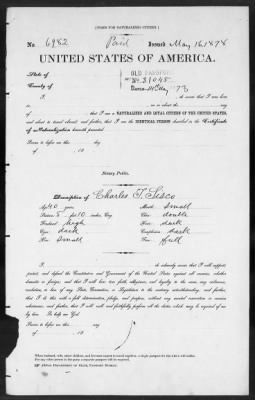 [FORM FOR NATURALIZED CITIZEN.]
No. 6982 Paid Issued May 16 1878
UNITED STATES OF AMERICA.
State of
County of
OLD PASSPORT
No. 31045
I, do swear that I was born
in on or about the day
of , 18 ; that I am a NATURALIZED AND LOYAL CITIZEN OF THE UNITED STATES,
and about to travel abroad; and further, that I am the IDENTICAL PERSON described in the Certificate
of Naturalization herewith presented.
Sworn to before me this day
of , 18
Notary Public.
Description of Charles T. Sisco
Age: 40 years. Mouth: small
Stature: 5 feet 10 inches, Eng. Chin: double
Forehead: high Hair: dark
Eyes: dark Complexion: dark
Nose: small Face: full
I, do solemnly swear that I will support,
protect, and defend the Constitution and Government of the United States against all enemies, whether
domestic or foreign; and that I will bear true faith, allegiance, and loyalty to the same, any ordinance,
resolution, or law of any State, Convention, or Legislature to the contrary notwithstanding; and further,
that I do this with a full determination, pledge, and purpose, without any mental reservation or evasion
whatsoever; and further, that I will well and faithfully perform all the duties which may be required of me
by law. So help me God.
Sworn to before me this day
of , 18